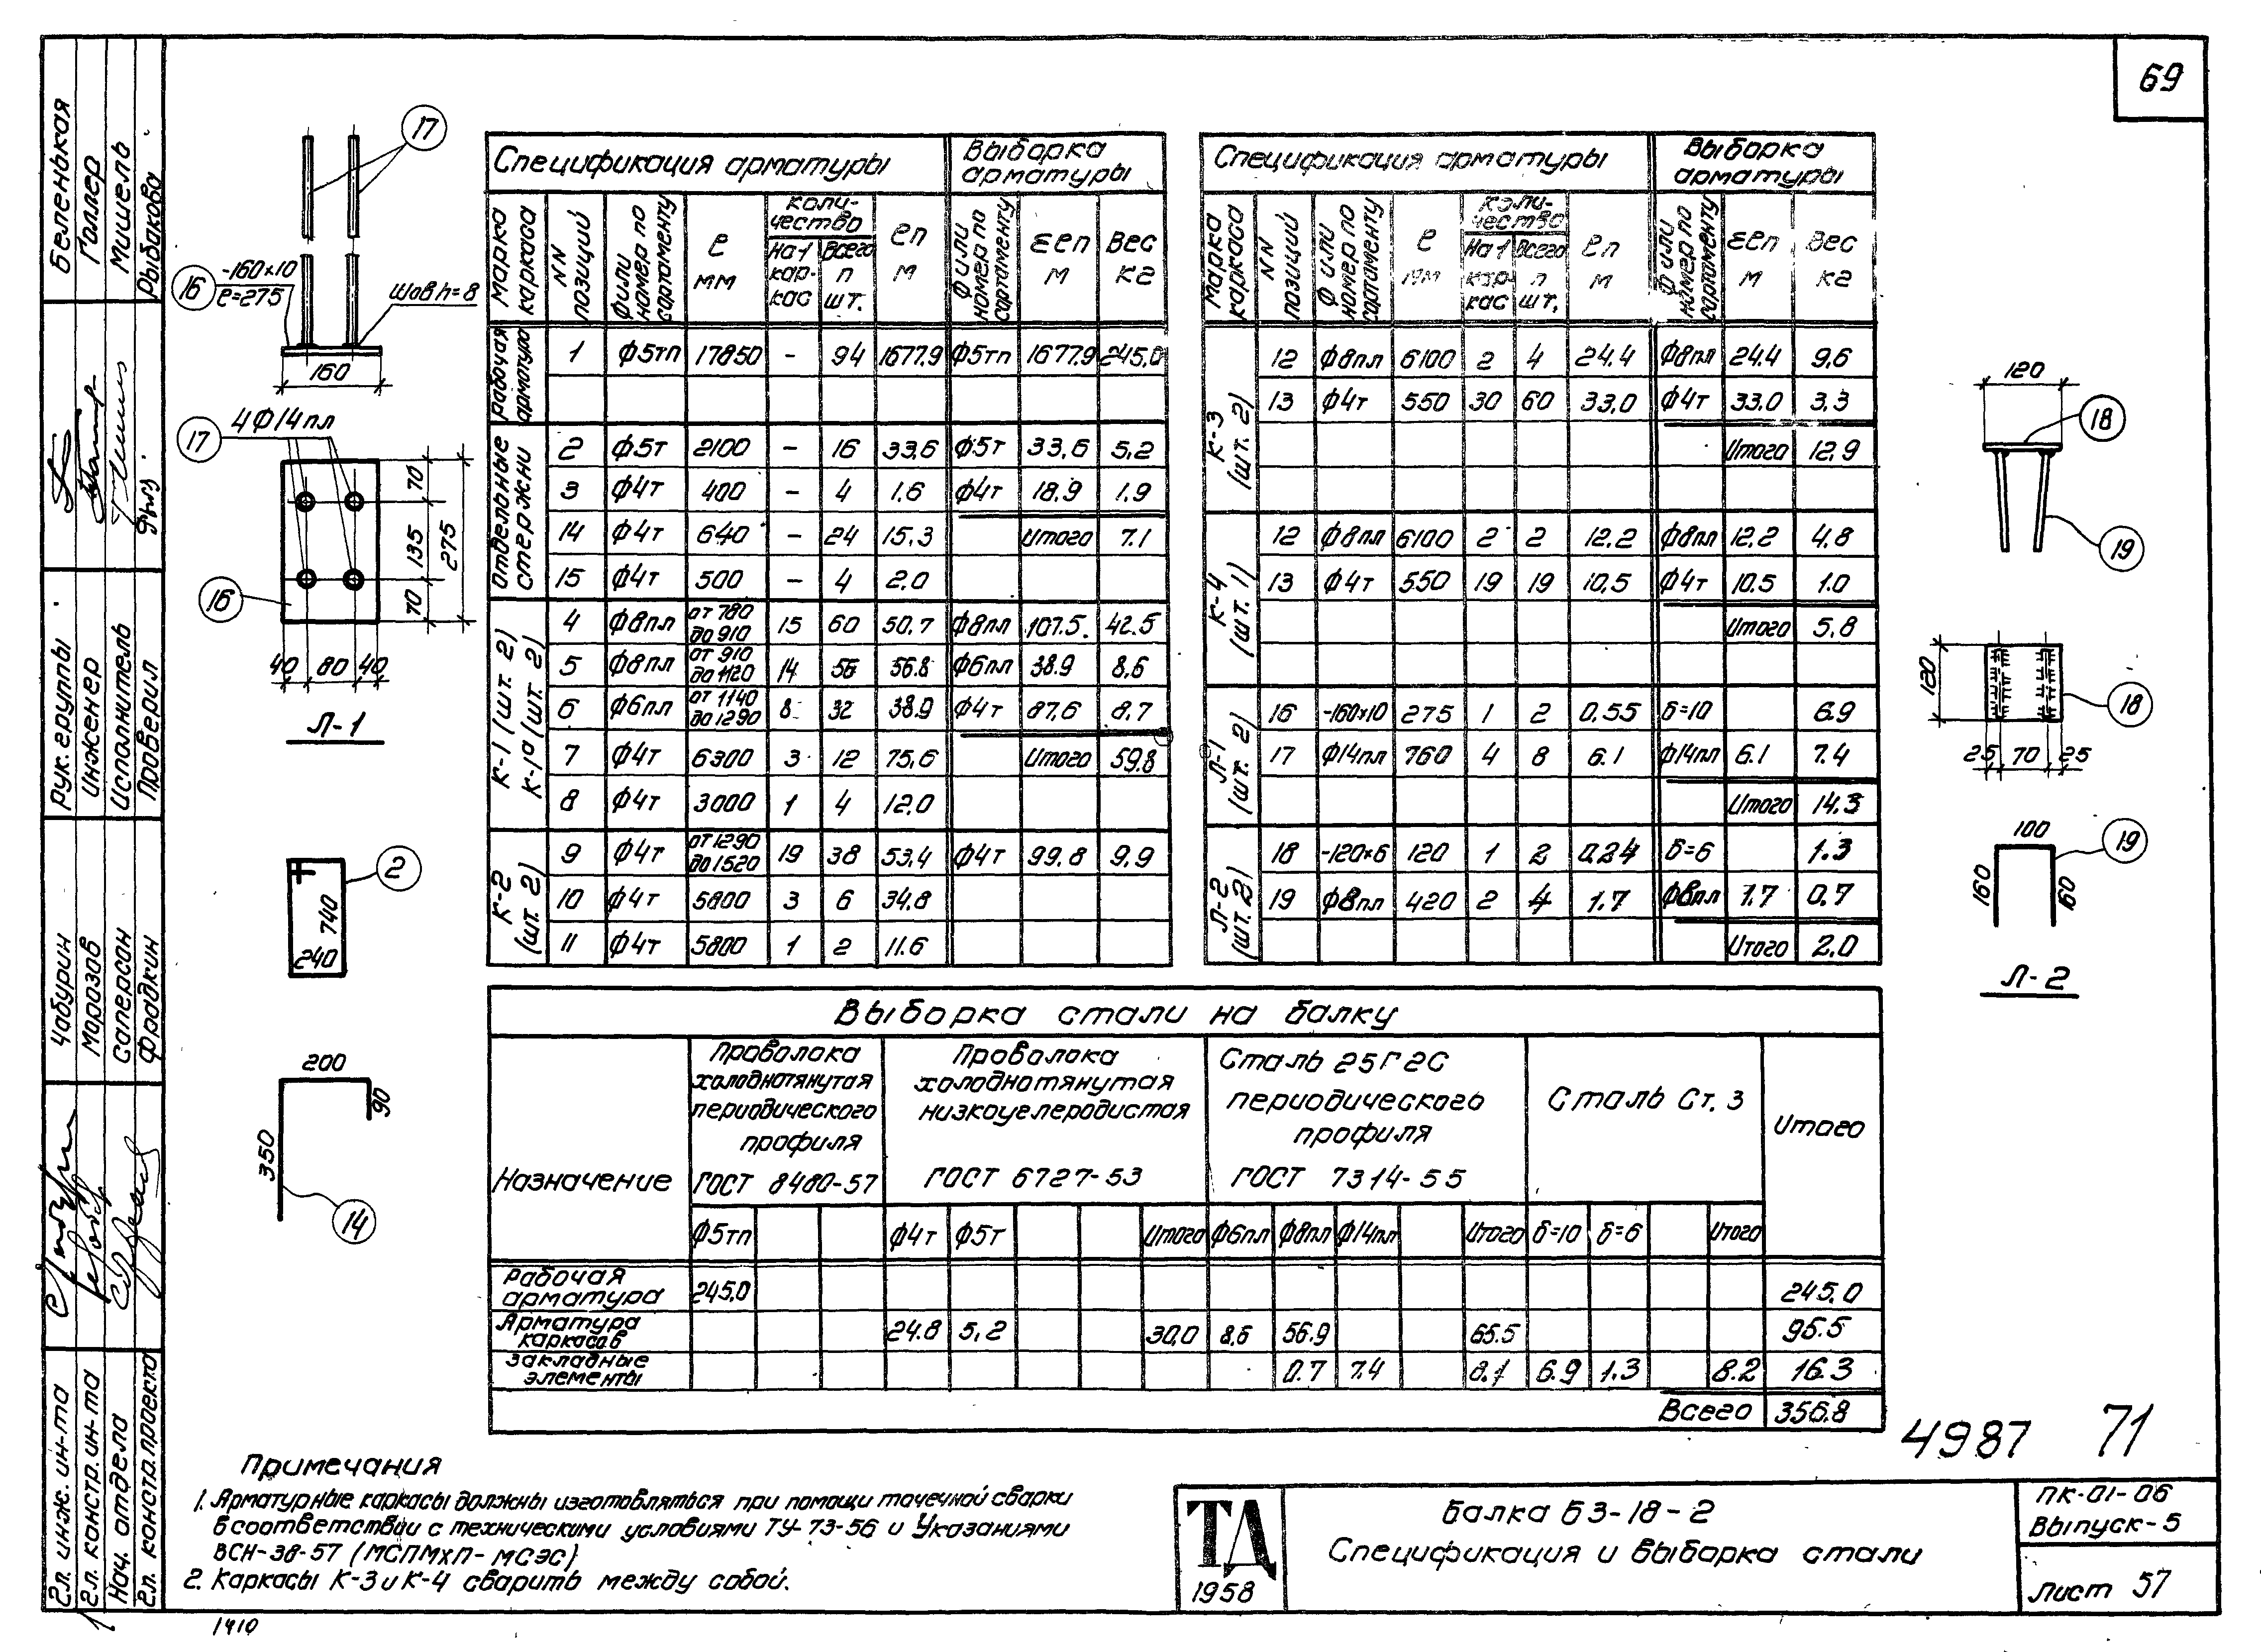 69
Беленькая
Голлер
Мишель
Рыбакова
Рук. группы
Инженер
Исполнитель
Проверил
Чабурин
Морозов
Саперсон
Фрадкин
Гл. инж. ин-та
Гл. констр. ин-та
Нач. отдела
Гл. констр. проекта
17
16 -160×10
ℓ=275
Шов h=8
160
4Ф14пл
17
70
135
275
70
16
40 80 40
Л-1
2
740
240
200
90
350
14
Спецификация арматуры Выборка арматуры
Марка каркаса NN позиций Ф или номер по сортаменту ℓ мм Количество На 1 каркас Всего n шт. ℓn м Ф или номер по сортаменту Σℓn м Вес кг
Рабочая арматура 1 Ф5тп 17850 - 94 1677.9 Ф5тп 1677.9 245,0
Отдельные стержни 2 Ф5т 2100 - 16 33,6 Ф5т 33,6 5,2
3 Ф4т 400 - 4 1.6 Ф4т 18.9 1.9
14 Ф4т 640 - 24 15.3 Итого 7.1
15 Ф4т 500 - 4 2.0
К-1 (шт. 2) К-1а (шт. 2) 4 Ф8пл от 780 до 910 15 60 50.7 Ф8пл 107.5. 42.5
5 Ф8пл от 910 до 1120 14 56 56.8 Ф6пл 38.9 8,6
6 Ф6пл от 1140 до 1290 8 32 38.9 Ф4т 87,6 8.7
7 Ф4т 6300 3 12 75,6 Итого 59.8
8 Ф4т 3000 1 4 12.0
К-2 (шт. 2) 9 Ф4т от 1290 до 1520 19 38 53,4 Ф4т 99,8 9,9
10 Ф4т 5800 3 6 34.8
11 Ф4т 5800 1 2 11.6
Спецификация арматуры Выборка арматуры
Марка каркаса NN позиций Ф или номер по сортаменту ℓ мм Количество На 1 каркас Всего n шт. ℓn м Ф или номер по сортаменту Σℓn м Вес кг
К-3 (шт. 2) 12 Ф8пл 6100 2 4 24.4 Ф8пл 24.4 9,6
13 Ф4т 550 30 60 33,0 Ф4т 33.0 3,3
Итого 12,9
К-4 (шт. 1) 12 Ф8пл 6100 2 2 12,2 Ф8пл 12,2 4.8
13 Ф4т 550 19 19 10,5 Ф4т 10.5 1.0
Итого 5,8
Л-1 (шт. 2) 16 -160×10 275 1 2 0,55 δ=10 6.9
17 Ф14пл 760 4 8 6.1 Ф14пл 6.1 7.4
Итого 14,3
Л-2 (шт. 2) 18 -120×6 120 1 2 0,24 δ=6 1.3
19 Ф8пл 420 2 4 1.7 Ф8пл 1.7 0.7
Итого 2.0
120
18
19
120
18
25 70 25
100
19
160
160
Л-2
Выборка стали на балку
Назначение
Проволока холоднотянутая периодического профиля ГОСТ 8480-57
Проволока холоднотянутая низкоуглеродистая ГОСТ 6727-53
Сталь 25Г2С периодического профиля ГОСТ 7314-55
Сталь Ст. 3
Итого
Ф5тп Ф4т Ф5т Итого Ф6пл Ф8пл Ф14пл Итого δ=10 δ=6 Итого
Рабочая арматура 245,0 245,0
Арматура каркасов 24.8 5,2 30,0 8,6 56.9 65.5 95.5
Закладные элементы 0.7 7.4 8.1 6.9 1.3 8.2 16.3
Всего 356.8
4987 71
Примечания
1. Арматурные каркасы должны изготовляться при помощи точечной сварки
в соответствии с техническими условиями ТУ-73-56 и Указаниями
ВСН-38-57 (МСПМХП-МСЭС)
2. Каркасы К-3 и К-4 сварить между собой.
ТД
1958
Балка Б3-18-2
Спецификация и выборка стали
ПК-01-06
Выпуск-5
Лист 57
1410